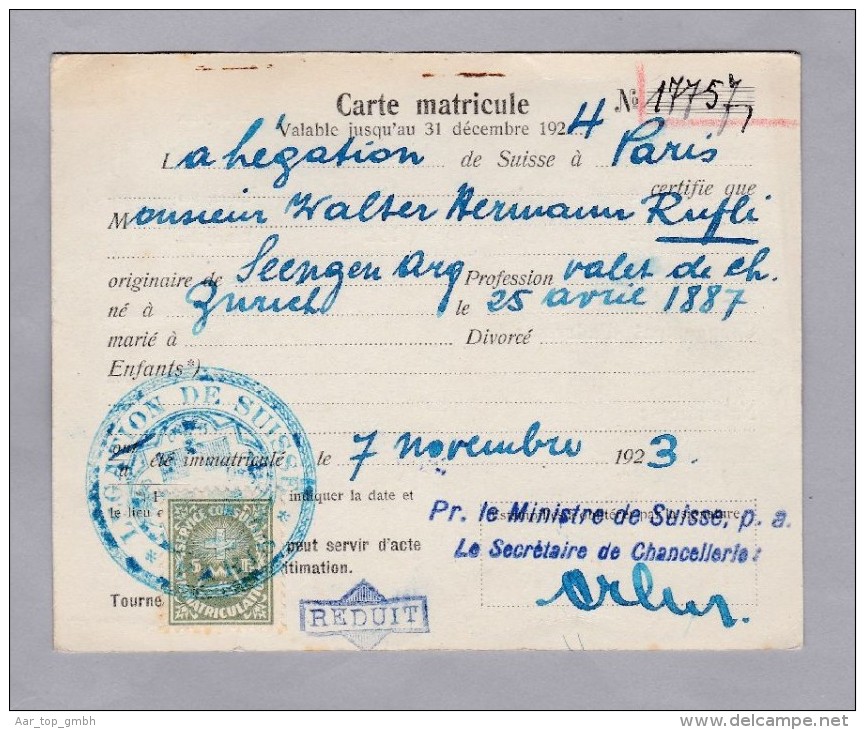 Carte matricule
№ 17757
Valable jusqu'au 31 décembre 1924
La Légation de Suisse à Paris
certifie que
Monsieur Walter Hermann Rufli
originaire de Seengen Arg Profession valet de ch.
né à Zürich le 25 avril 1887
marié à Divorcé
Enfants*)
LEGATION DE SUISSE
a été immatriculé le 7 novembre 1923.
indiquer la date et
le lieu
Pr. le Ministre de Suisse, p. a.
Le Secrétaire de Chancellerie:
peut servir d'acte
itimation.
SERVICE
5 Fr
MATRICULATI
Tourne
REDUIT
Aar_top_gmbh